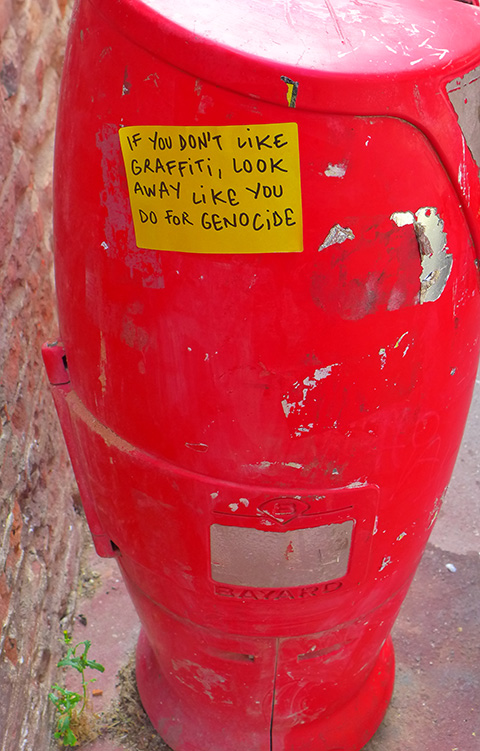 IF YOU DON'T LIKE
GRAFFITI, LOOK
AWAY LIKE YOU
DO FOR GENOCIDE
BAYARD